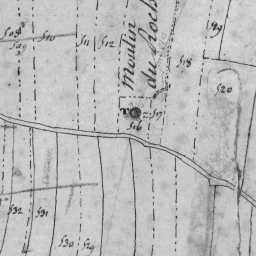 508
509
510
511
512
Moulin
du Roch
518
519
520
517
516
532
531
530
529